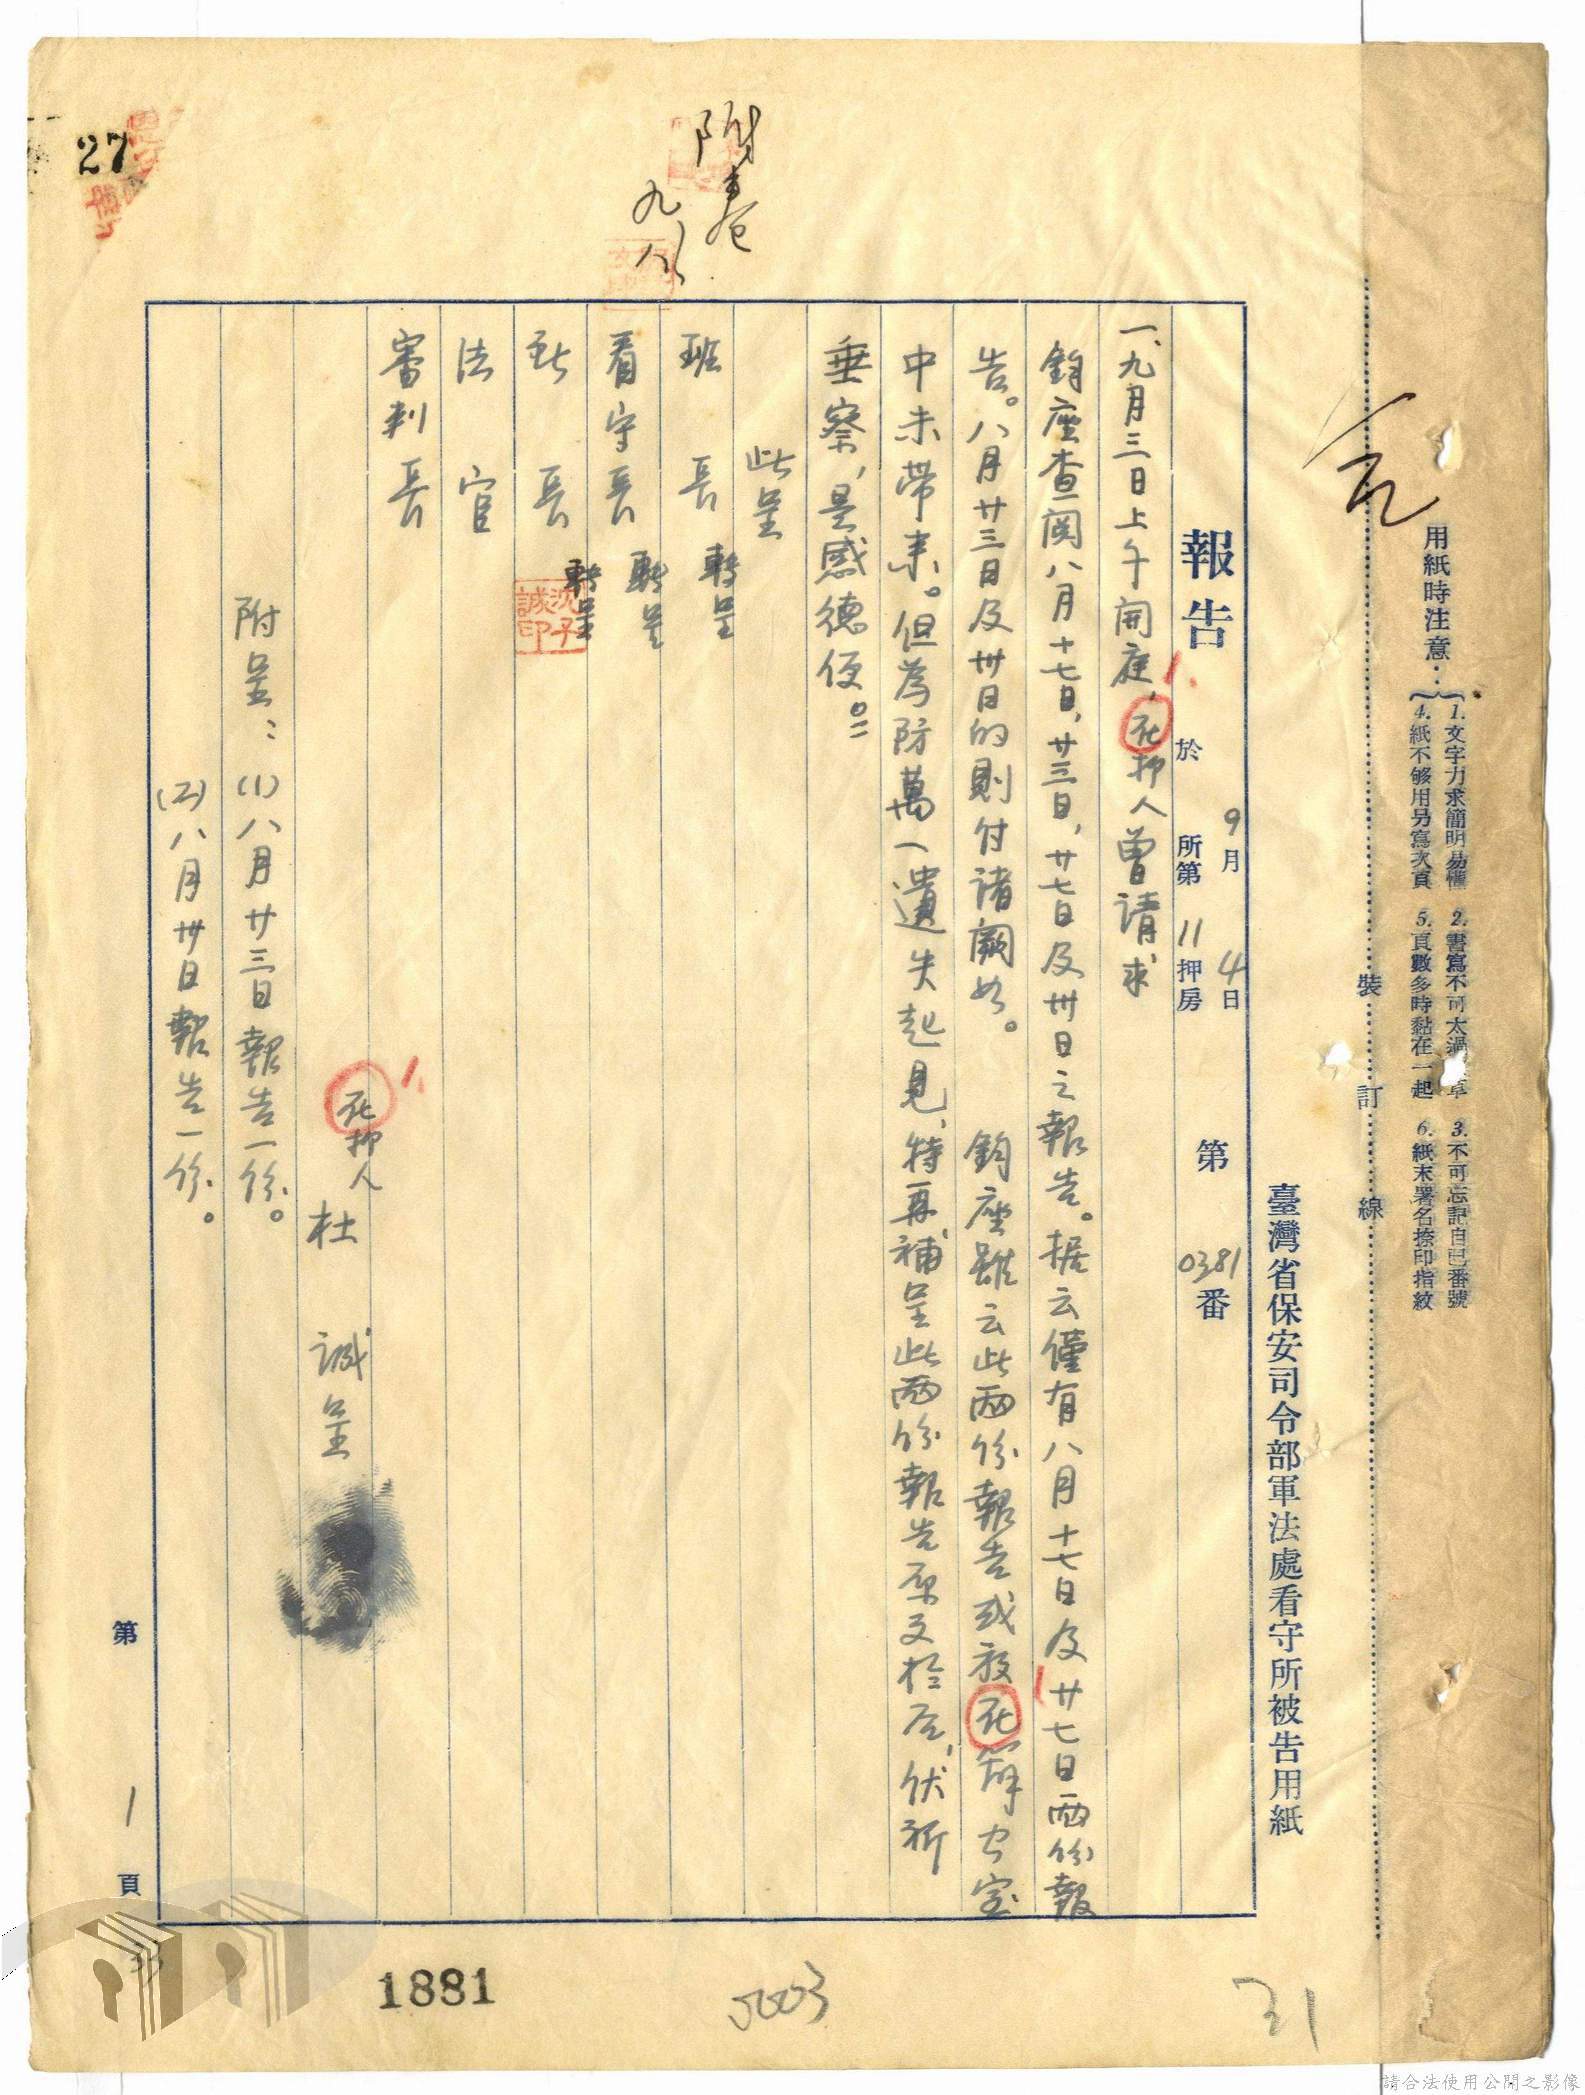 用紙時注意：
1. 文字力求簡明易懂 2. 書寫不可太過草 3. 不可忘記自己番號
4. 紙不够用另寫次頁 5. 頁數多時黏在一起 6. 紙末署名捺印指紋
裝訂線
臺灣省保安司令部軍法處看守所被告用紙
報告 於 9月4日 所第11押房 第0381番
一、九月三日上午開庭，死押人曾請求
鈞座查閱八月十七日，廿三日，廿七日及卅日之報告。据云僅有八月十七日及廿七日兩份報
告。八月廿三日及卅日的則付諸闕如。 鈞座雖云此兩份報告或放死辦公室
中未帶來。但為防萬一遺失起見，特再補呈此兩份報告原文於后，伏祈
垂察，是感德便。
此呈
班長 轉呈
看守長 轉呈
所長 轉呈
沈子誠印
法官
審判長
死押人 杜誠呈
附呈：(1)八月廿三日報告一份。
(2)八月卅日報告一份。
第1頁
附卷
九、八
27
33
1881
5003
31
請合法使用公開之影像